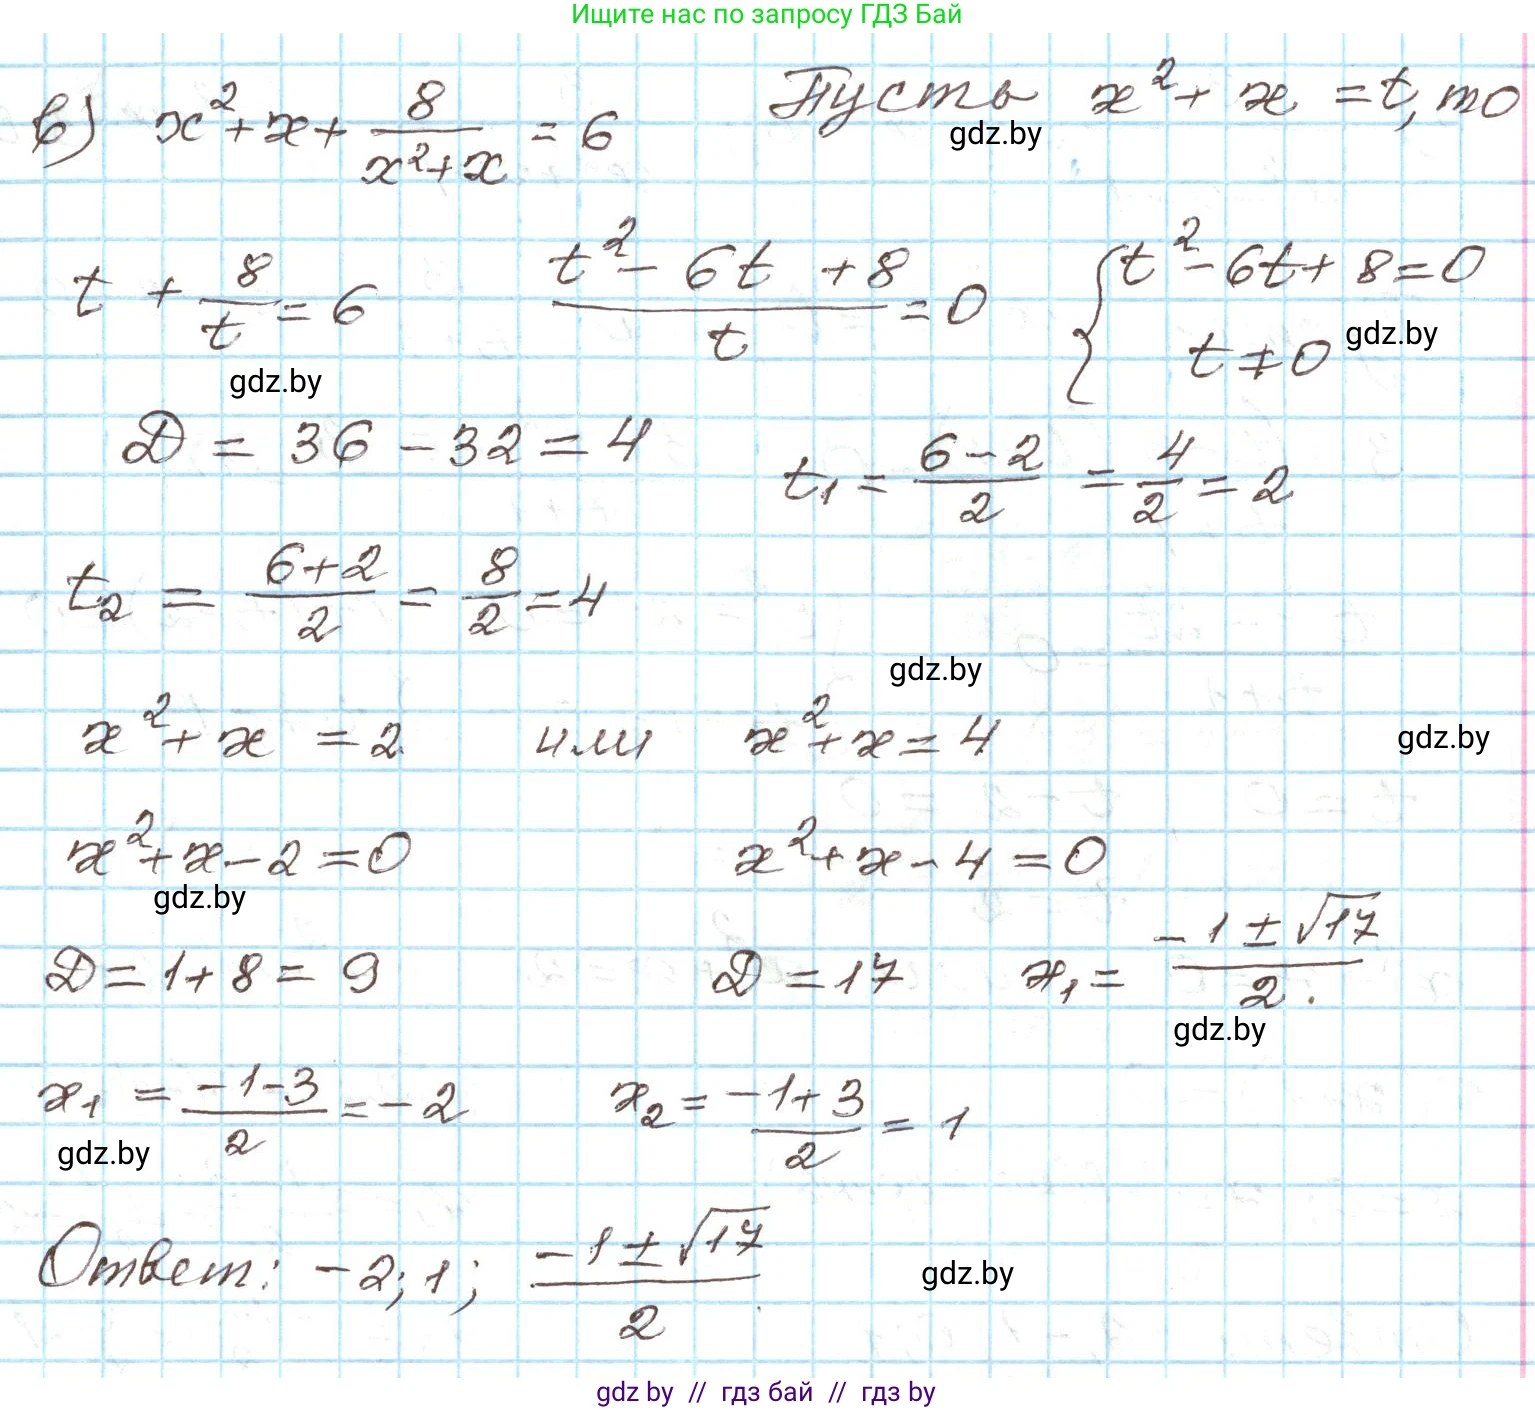 Ищите нас по запросу ГДЗ Бай
в) x² + x + 8/(x² + x) = 6 Пусть x² + x = t, то
gdz.by
t + 8/t = 6 (t² - 6t + 8)/t = 0 { t² - 6t + 8 = 0
t ≠ 0 gdz.by
gdz.by
D = 36 - 32 = 4 t₁ = (6 - 2)/2 = 4/2 = 2
t₂ = (6 + 2)/2 = 8/2 = 4
gdz.by
x² + x = 2 или x² + x = 4 gdz.by
x² + x - 2 = 0 x² + x - 4 = 0
gdz.by
D = 1 + 8 = 9 D = 17 x₁ = (-1 ± √17)/2.
gdz.by
x₁ = (-1 - 3)/2 = -2 x₂ = (-1 + 3)/2 = 1
gdz.by
Ответ: -2; 1; (-1 ± √17)/2 gdz.by
gdz by // гдз бай // гдз by